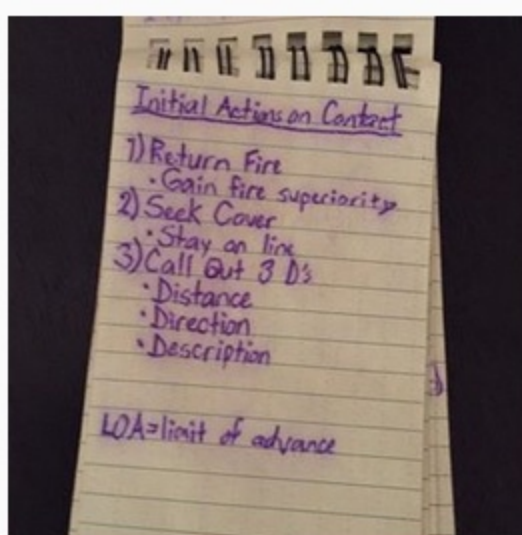 Initial Actions on Contact
1) Return Fire
• Gain fire superiority
2) Seek Cover
• Stay on line
3) Call Out 3 D's
• Distance
• Direction
• Description
LOA=limit of advance